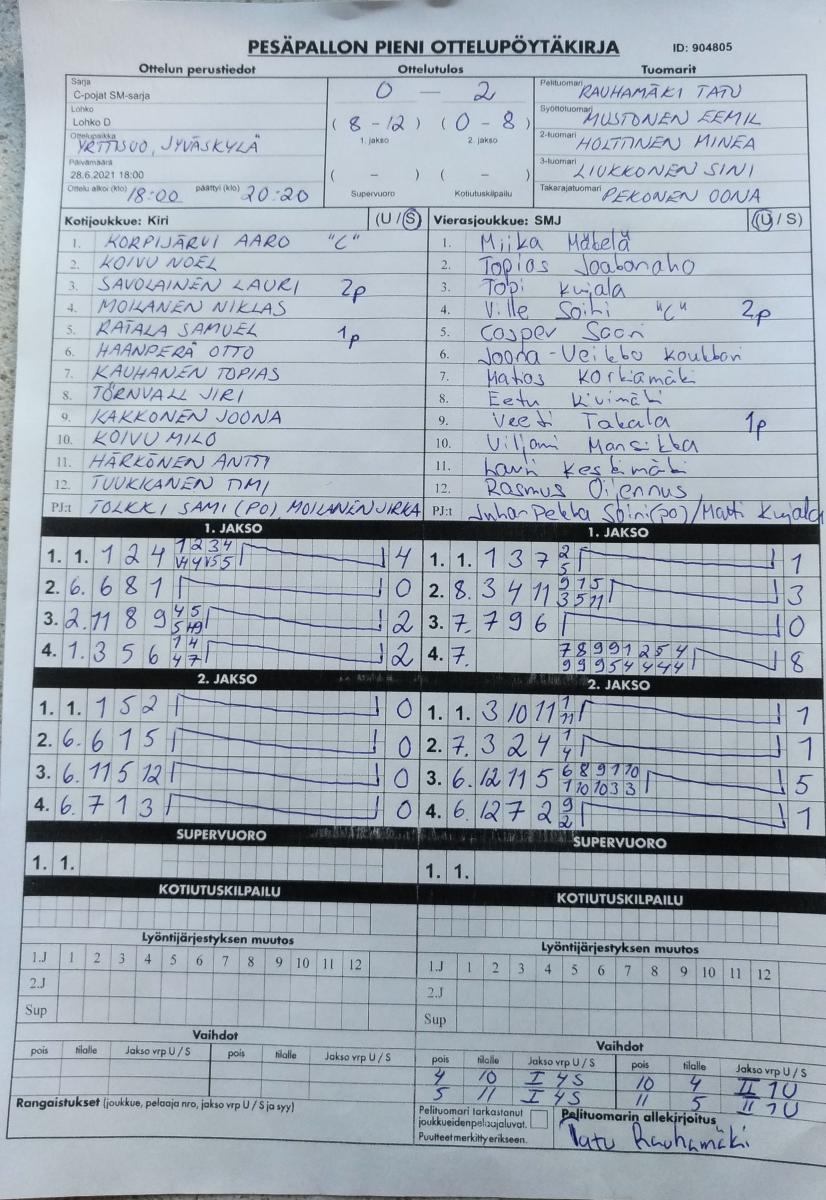 PESÄPALLON PIENI OTTELUPÖYTÄKIRJA ID: 904805
Ottelun perustiedot Ottelutulos Tuomarit
Sarja
C-pojat SM-sarja
Lohko
Lohko D
Ottelupaikka
YRTTISUO, JYVÄSKYLÄ
Päivämäärä
28.6.2021 18:00
Ottelu alkoi (klo) 18:00 päättyi (klo) 20:20
0 — 2
( 8 - 12 ) ( 0 - 8 )
1. jakso 2. jakso
( – ) ( – )
Supervuoro Kotiutuskilpailu
Pelituomari RAUHAMÄKI TATU
Syöttötuomari MUSTONEN EEMIL
2-tuomari HOLTTINEN MINEA
3-tuomari LIUKKONEN SINI
Takarajatuomari PEKONEN OONA
Kotijoukkue: Kiri (U / S)
1. KORPIJÄRVI AARO "C"
2. KOIVU NOEL
3. SAVOLAINEN LAURI 2p
4. MOILANEN NIKLAS
5. RATALA SAMUEL 1p
6. HAANPERÄ OTTO
7. KAUHANEN TOPIAS
8. TÖRNVALL JIRI
9. KAKKONEN JOONA
10. KOIVU MILO
11. HÄRKÖNEN ANTTI
12. TUUKKANEN TIMI
PJ:t TOLKKI SAMI (PO), MOILANEN JIRKA
Vierasjoukkue: SMJ (U / S)
1. Miika Mäkelä
2. Topias Joakanaho
3. Topi Kujala
4. Ville Soini "C" 2p
5. Casper Saari
6. Joona-Veikko Koukkari
7. Matias Korkiamäki
8. Eetu Kivimäki
9. Veeti Takala 1p
10. Viljami Mansikka
11. Lauri Keskimäki
12. Rasmus Oijennus
PJ:t Juha-Pekka Soini (po) / Matti Kujala
1. JAKSO
1. 1. 1 2 4 1 2 3 4 4
2. 6. 6 8 1 0
3. 2. 11 8 9 4 5 2
4. 1. 3 5 6 1 4 2
4 7
1. JAKSO
1. 1. 1 3 7 2 1
5
2. 8. 3 4 11 9 1 5 3
3 5 11
3. 7. 7 9 6 0
4. 7. 7 8 9 9 1 2 5 4 8
9 9 9 5 4 4 4 4
2. JAKSO
1. 1. 1 5 2 0
2. 6. 6 1 5 0
3. 6. 11 5 12 0
4. 6. 7 1 3 0
2. JAKSO
1. 1. 3 10 11 1 1
11
2. 7. 3 2 4 1 1
4
3. 6. 12 11 5 6 8 9 1 7 10 5
1 10 10 3 3
4. 6. 12 7 2 9 1
2
SUPERVUORO
1. 1.
SUPERVUORO
1. 1.
KOTIUTUSKILPAILU
KOTIUTUSKILPAILU
Lyöntijärjestyksen muutos
1.J 1 2 3 4 5 6 7 8 9 10 11 12
2.J
Sup
Lyöntijärjestyksen muutos
1.J 1 2 3 4 5 6 7 8 9 10 11 12
2.J
Sup
Vaihdot
pois tilalle Jakso vrp U / S pois tilalle Jakso vrp U / S
Vaihdot
pois tilalle Jakso vrp U / S pois tilalle Jakso vrp U / S
4 10 I 4S 10 4 II 1U
5 11 I 4S 11 5 II 1U
Rangaistukset (joukkue, pelaaja nro, jakso vrp U / S ja syy)
Pelituomari tarkastanut
joukkueiden pelaajaluvat.
Puutteet merkitty erikseen.
Pelituomarin allekirjoitus
Tatu Rauhamäki